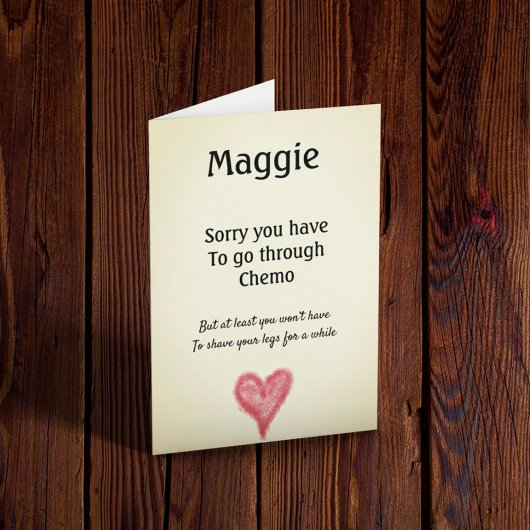 Maggie
Sorry you have
To go through
Chemo
But at least you won't have
To shave your legs for a while